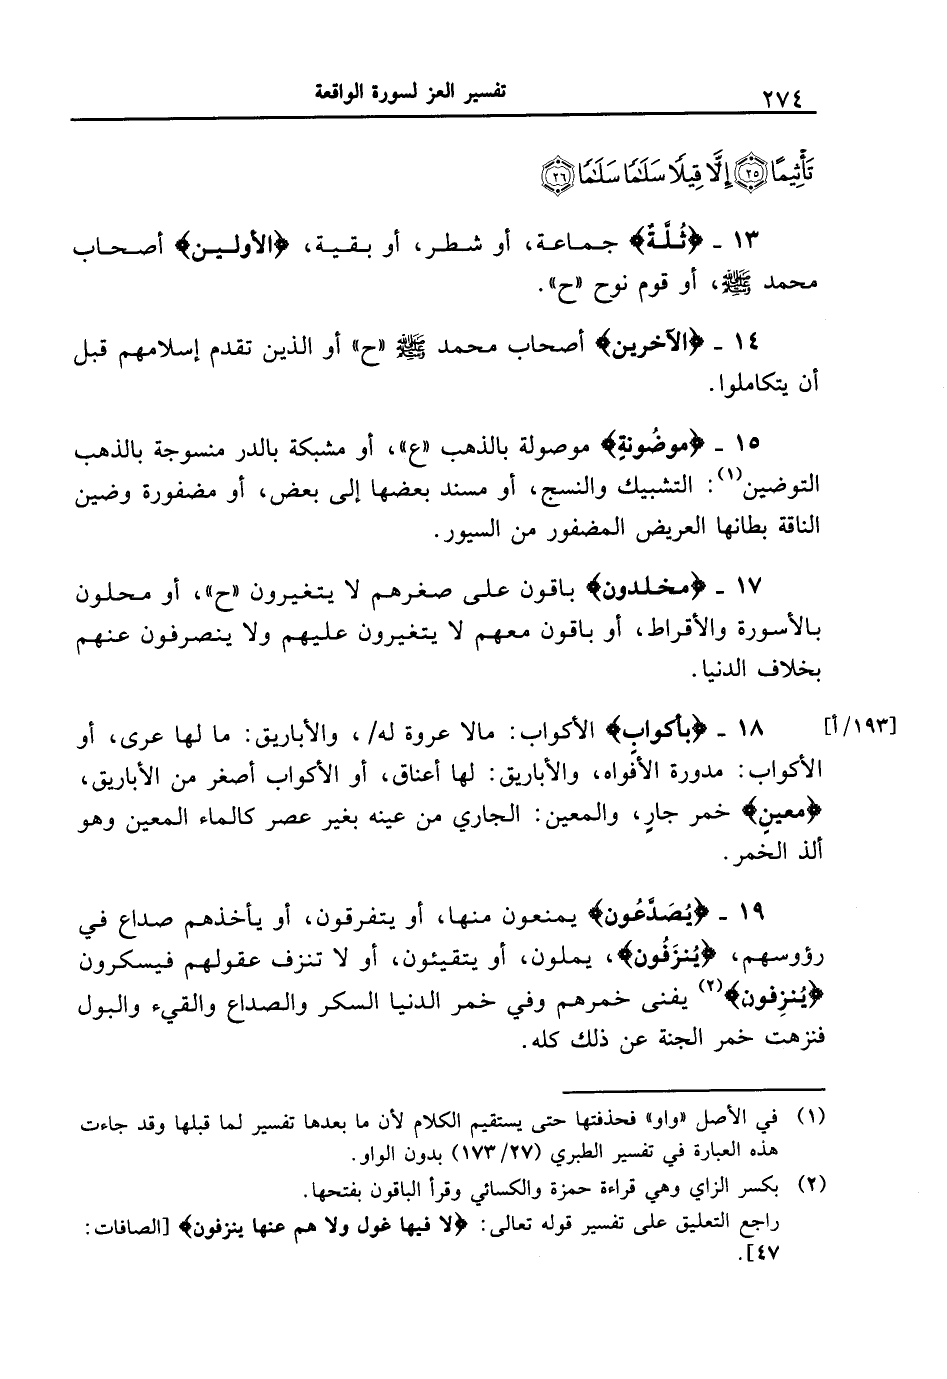 ٢٧٤ تفسير العز لسورة الواقعة
تَأْثِيمًا ﴿٢٥﴾ إِلَّا قِيلًا سَلَٰمًا سَلَٰمًا ﴿٢٦﴾
١٣ ـ ﴿ثُلَّةٌ﴾ جماعة، أو شطر، أو بقية، ﴿الأولين﴾ أصحاب
محمد ﷺ، أو قوم نوح «ح».
١٤ ـ ﴿الآخرين﴾ أصحاب محمد ﷺ «ح» أو الذين تقدم إسلامهم قبل
أن يتكاملوا.
١٥ ـ ﴿موضُونةٍ﴾ موصولة بالذهب «ع»، أو مشبكة بالدر منسوجة بالذهب
التوضين(١): التشبيك والنسج، أو مسند بعضها إلى بعض، أو مضفورة وضين
الناقة بطانها العريض المضفور من السيور.
١٧ ـ ﴿مخلدون﴾ باقون على صغرهم لا يتغيرون «ح»، أو محلون
بالأسورة والأقراط، أو باقون معهم لا يتغيرون عليهم ولا ينصرفون عنهم
بخلاف الدنيا.
[١٩٣/أ] ١٨ ـ ﴿بأكوابٍ﴾ الأكواب: مالا عروة له/، والأباريق: ما لها عرى، أو
الأكواب: مدورة الأفواه، والأباريق: لها أعناق، أو الأكواب أصغر من الأباريق،
﴿معينٍ﴾ خمر جارٍ، والمعين: الجاري من عينه بغير عصر كالماء المعين وهو
ألذ الخمر.
١٩ ـ ﴿يُصَدَّعُون﴾ يمنعون منها، أو يتفرقون، أو يأخذهم صداع في
رؤوسهم، ﴿يُنزَفُون﴾، يملون، أو يتقيئون، أو لا تنزف عقولهم فيسكرون
﴿يُنزِفون﴾(٢) يفنى خمرهم وفي خمر الدنيا السكر والصداع والقيء والبول
فنزهت خمر الجنة عن ذلك كله.
(١) في الأصل «واو» فحذفتها حتى يستقيم الكلام لأن ما بعدها تفسير لما قبلها وقد جاءت
هذه العبارة في تفسير الطبري (٢٧/١٧٣) بدون الواو.
(٢) بكسر الزاي وهي قراءة حمزة والكسائي وقرأ الباقون بفتحها.
راجع التعليق على تفسير قوله تعالى: ﴿لا فيها غول ولا هم عنها ينزفون﴾ [الصافات:
٤٧].